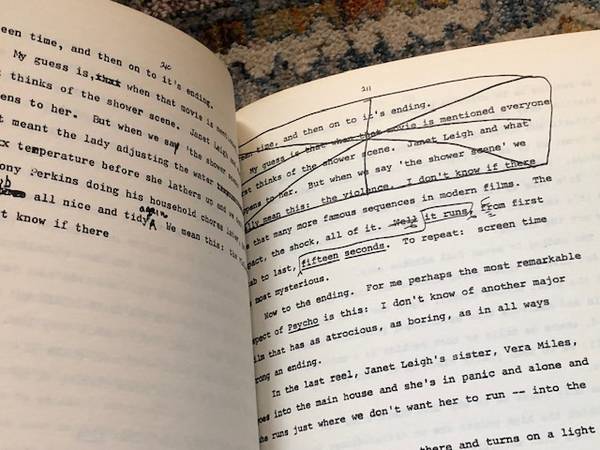 210
een time, and then on to it's ending.
My guess is, that when that movie is
thinks of the shower scene. Janet Leigh
ens to her. But when we say 'the shower
t meant the lady adjusting the water
temperature before she lathers up and we
ony Perkins doing his household chores
all nice and tidy again. We mean this:
t know if there
211
time, and then on to it's ending.
My guess is that when that movie is mentioned everyone
st thinks of the shower scene. Janet Leigh and what
pens to her. But when we say 'the shower scene' we
lly mean this: the violence. I don't know if there
that many more famous sequences in modern films. The
pact, the shock, all of it. Well it runs, From first
ab to last, fifteen seconds. To repeat: screen time
most mysterious.
Now to the ending. For me perhaps the most remarkable
pect of Psycho is this: I don't know of another major
ilm that has as atrocious, as boring, as in all ways
rong an ending.
In the last reel, Janet Leigh's sister, Vera Miles,
oes into the main house and she's in panic and alone and
he runs just where we don't want her to run -- into the
there and turns on a light